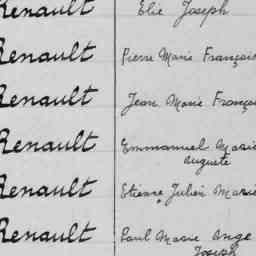 Renault Elie Joseph
Renault Pierre Marie François
Renault Jean Marie Françoi
Renault Emmanuel Marie
Auguste
Renault Etienne Julien Marie
Renault Paul Marie Ange
Joseph